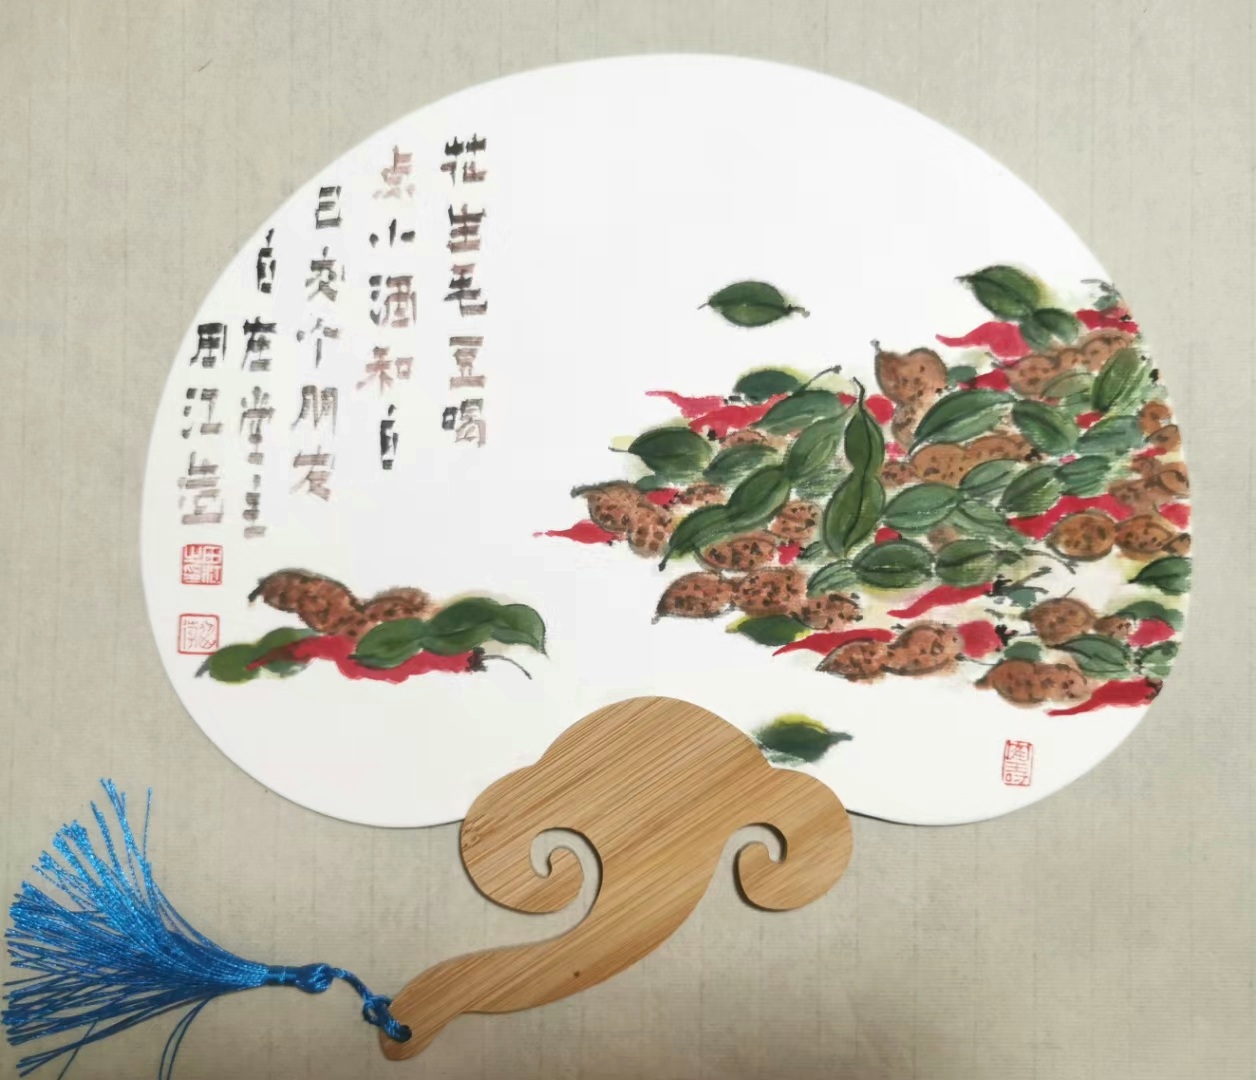 花生毛豆喝
点小酒和自
己交个朋友
自在堂主
周江